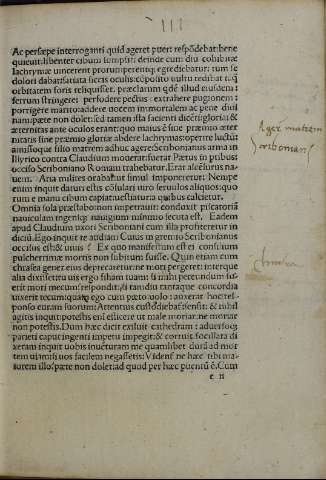 III
Ac persæpe interroganti quid ageret puer: respõdebat: bene
quieuit: libenter cibum sumpsit: deinde cum diu cohibitæ
lachrymæ uincerent prorumperentq; egrediebatur: tum se
dolori dabat: satiata siccis oculis: cõposito uultu redibat tãq̃
orbitatem foris reliquisset. præclarum qdẽ illud eiusdem:
ferrum stringere: perfodere pectus: extrahere pugionem:
porrigere marito: addere uocem immortalem ac pene diui
nam: pæte non dolet: sed tamen ista facienti dicẽti: gloria: &
æternitas ante oculos erant: quo maius ẽ sine præmio æter
nitatis sine præmio gloriæ abdere lachrymas: operire luctũ:
amissoque filio matrem adhuc agere: Scribonianus arma in
Illyrico contra Claudium mouerat: fuerat Pætus in ptibus:
occiso Scriboniano Romam trahebatur. Erat ascẽsurus na
uem. Arria milites orabat ut simul imponeretur: Nempe
enim inquit daturi estis cõsulari uiro seruulos aliquos: quo
rum e manu cibum capiat: uestiatur a quibus calcietur.
Omnia sola præstabo: non imperauit: conduxit piscatoriã
nauiculam ingensq; nauigium minimo secuta est. Eadem
apud Claudium uxori Scriboniani cum illa profiteretur in
diciũ. Ego inquit te audiam: Cuius in gremio Scribonianus
occisus est: & uiuis? Ex quo manifestum est ei consilium
pulcherrimæ mortis non subitum fuisse. Quin etiam cum
thrasea gener eius deprecaretur ne mori pergeret: interque
alia dixisset: tu uis ergo filiam tuam: si mihi pereundum fu
erit mori mecum: respondit: si tandiu tantaque concordia
uixerit tecum: quãq̃ ego cum pæto: uolo: auxerat hoc res
ponso curam suorum: Attentius custodiebat: sensit: & nihil
agitis inquit: potestis enĩ efficere ut male moriar: ne moriar
non potestis. Dum hæc dicit exiluit cathedram: aduersoq;
parieti caput ingenti impetu impegit: & corruit: focillata di
xeram inquit uobis inuẽturam me quamlibet durã ad mor
tem uiam: si uos facilem negassetis: Videnſ ne hæc tibi ma
iora illo: pæte non dolet: ad quod per hæc puentũ ẽ. Cum
e ii
Agere matrem
Scribonian?